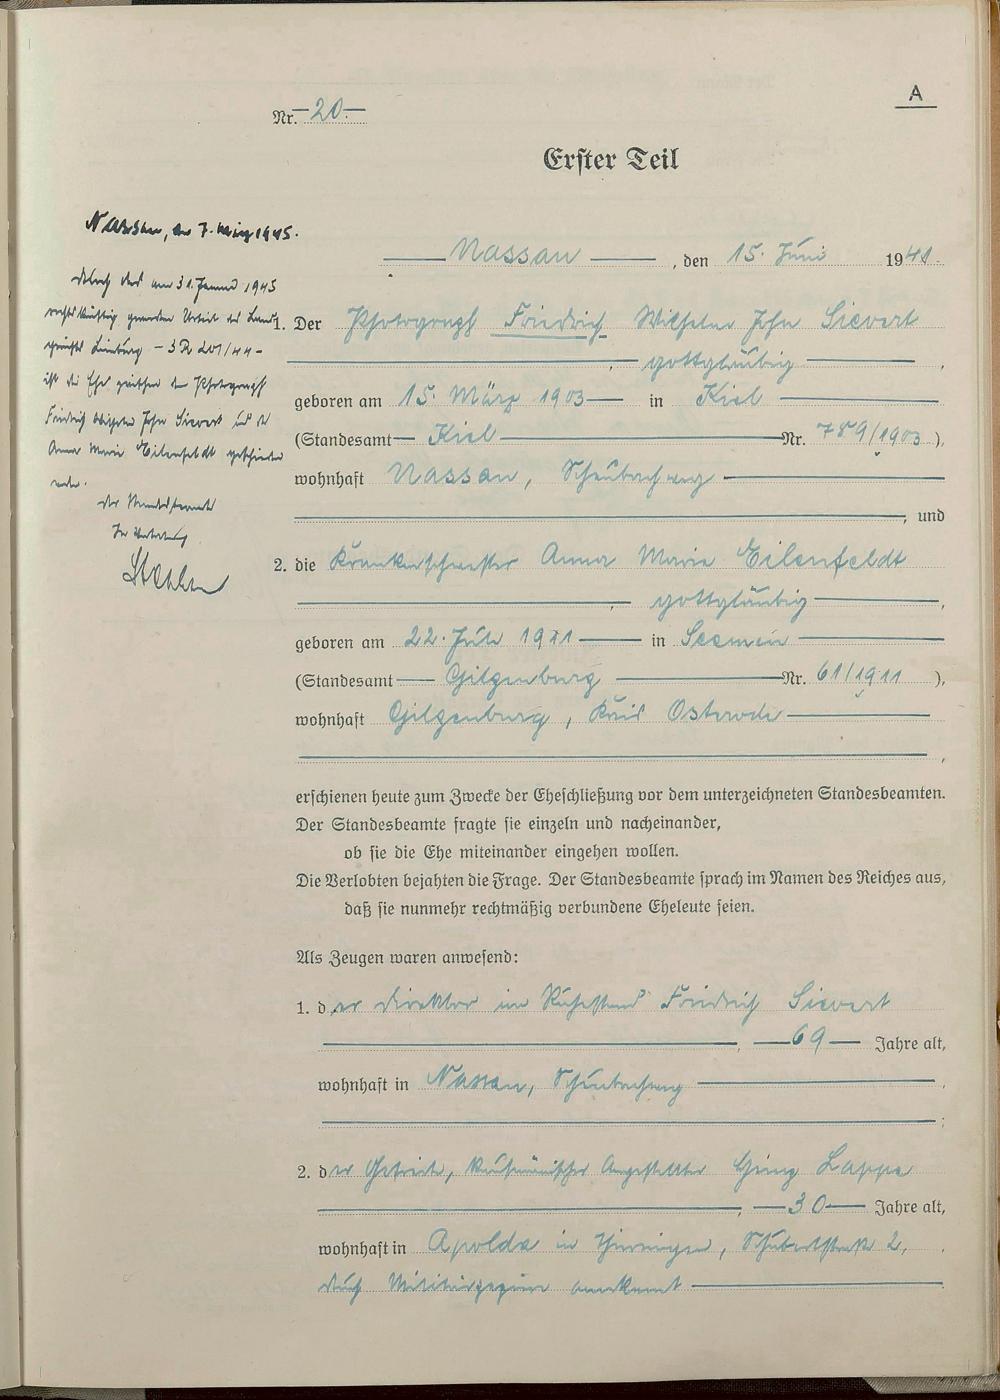 A
Nr. —20.—
Erster Teil
Nassau, den 7. März 1945.
Durch das am 31. Januar 1945
rechtskräftig gewordene Urteil des Land-
gerichts Limburg – 3 R 201/44 –
ist die Ehe zwischen dem Photograph
Friedrich Wilhelm John Sievert und der
Anna Marie Eilenfeldt geschieden
worden.
Der Standesbeamte
In Vertretung
Nassau, den 15. Juni 1941.
1. Der Photograph Friedrich Wilhelm John Sievert
, gottgläubig ,
geboren am 15. März 1903 in Kiel
(Standesamt Kiel Nr. 789/1903 ),
wohnhaft Nassau,
, und
2. die Krankenschwester Anna Marie Eilenfeldt
, gottgläubig ,
geboren am 22. Juli 1911 in Seemen
(Standesamt Gilgenburg Nr. 61/1911 ),
wohnhaft Gilgenburg, Kreis Osterode
,
erschienen heute zum Zwecke der Eheschließung vor dem unterzeichneten Standesbeamten.
Der Standesbeamte fragte sie einzeln und nacheinander,
ob sie die Ehe miteinander eingehen wollen.
Die Verlobten bejahten die Frage. Der Standesbeamte sprach im Namen des Reiches aus,
daß sie nunmehr rechtmäßig verbundene Eheleute seien.
Als Zeugen waren anwesend:
1. der Direktor im Ruhestand Friedrich Sievert
, —69— Jahre alt,
wohnhaft in Nassau,
;
2. der Gefreite, kaufmännischer Angestellter Heinz Lappe
, —30— Jahre alt,
wohnhaft in Apolda in Thüringen, Schubertstraße 2,
durch anerkannt